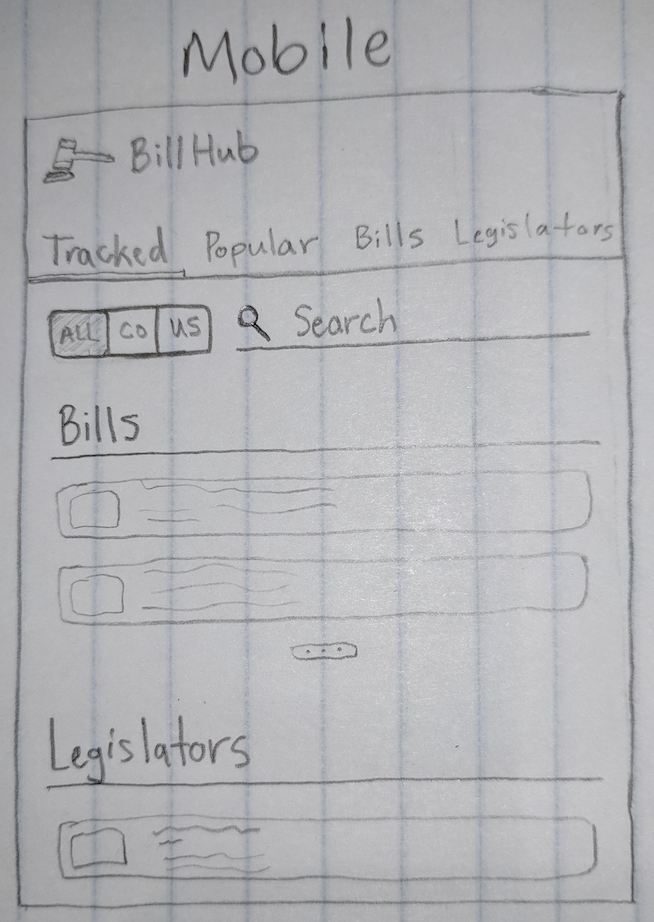 Mobile
BillHub
Tracked Popular Bills Legislators
ALL CO US Search
Bills
Legislators